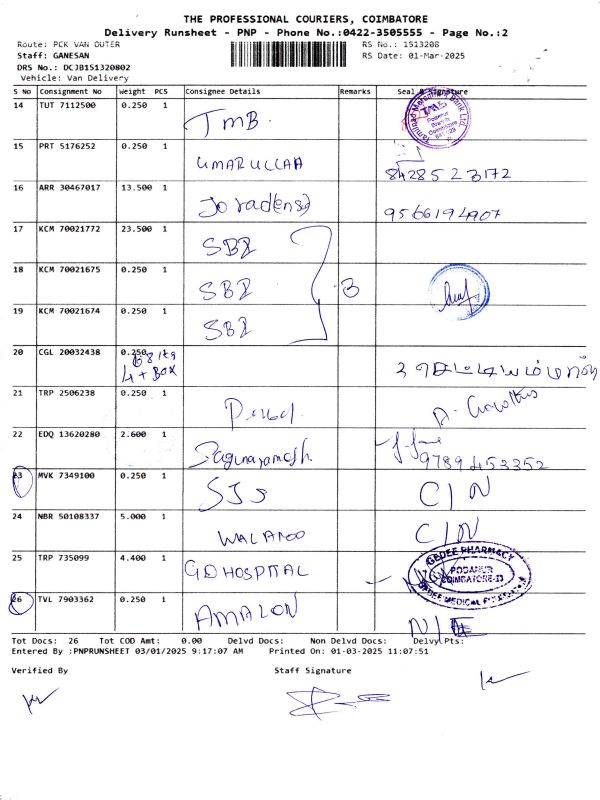 THE PROFESSIONAL COURIERS, COIMBATORE
Delivery Runsheet - PNP - Phone No.:0422-3505555 - Page No.:2
Route: PCK VAN OUTER RS No.: 1513208
Staff: GANESAN RS Date: 01-Mar-2025
DRS No.: DCJB151320802
Vehicle: Van Delivery
S No Consignment No Weight PCS Consignee Details Remarks Seal & Signature
14 TUT 7112500 0.250 1 TMB.
15 PRT 5176252 0.250 1 UMARULLAH 8428523172
16 ARR 30467017 13.500 1 9566194907
17 KCM 70021772 23.500 1 SBI
18 KCM 70021675 0.250 1 SBI 3
19 KCM 70021674 0.250 1 SBI
20 CGL 20032438 0.250
4 + BOX
21 TRP 2506238 0.250 1
22 EDQ 13620280 2.600 1 9789453352
23 MVK 7349100 0.250 1 SJS C/N
24 NBR 50108337 5.000 1 C/N
25 TRP 735099 4.400 1 GD HOSPITAL
GEDEE PHARMACY
PODANUR
COIMBATORE-23
26 TVL 7903362 0.250 1 AMALON
Tot Docs: 26 Tot COD Amt: 0.00 Delvd Docs: Non Delvd Docs: Delvy Pts:
Entered By :PNPRUNSHEET 03/01/2025 9:17:07 AM Printed On: 01-03-2025 11:07:51
Verified By Staff Signature